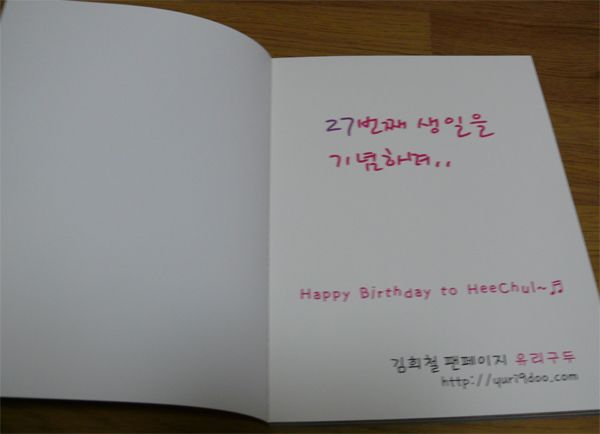 27번째 생일을
기념하려..
Happy Birthday to HeeChul~♬
김희철 팬페이지 유리구두
http://yuri9doo.com